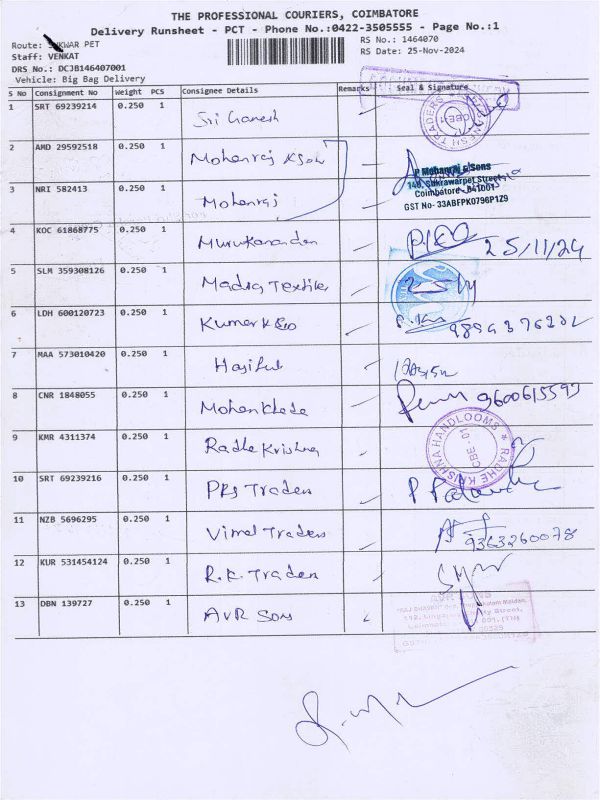 THE PROFESSIONAL COURIERS, COIMBATORE
Delivery Runsheet - PCT - Phone No.:0422-3505555 - Page No.:1
Route: SUKWAR PET RS No.: 1464070
Staff: VENKAT RS Date: 25-Nov-2024
DRS No.: DCJB146407001
Vehicle: Big Bag Delivery
S No Consignment No Weight PCS Consignee Details Remarks Seal & Signature
1 SRT 69239214 0.250 1 Sri Ganesh
2 AMD 29592518 0.250 1 Mohanraj & Son
P Mohanraj & Sons
148, Sukrawarpet Street,
Coimbatore - 641001
GST No- 33ABFPK0796P1Z9
3 NRI 582413 0.250 1 Mohanraj
4 KOC 61868775 0.250 1 Murukanandan 25/11/24
5 SLM 359308126 0.250 1 Madra Textiles
6 LDH 600120723 0.250 1 Kumar & Bro
7 MAA 573010420 0.250 1
8 CNR 1848055 0.250 1 9600615593
9 KMR 4311374 0.250 1 Radhe Krishna
RADHE KRISHNA HANDLOOMS
CBE-01
10 SRT 69239216 0.250 1 PRS Traders
11 NZB 5696295 0.250 1 Vimal Traders 9363260078
12 KUR 531454124 0.250 1 R.K. Traders
13 DBN 139727 0.250 1 AVR Sons
AVR SONS